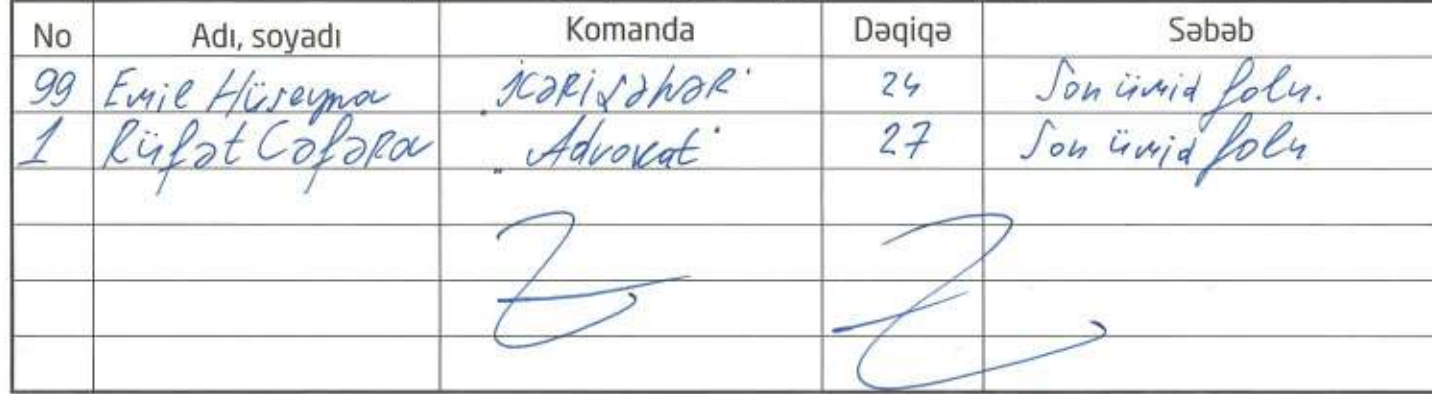 No Adı, soyadı Komanda Dəqiqə Səbəb
99 Emil Hüseynov "İçərişəhər" 24 Son ümid folu.
1 Rüfət Cəfərov "Advokat" 27 Son ümid folu